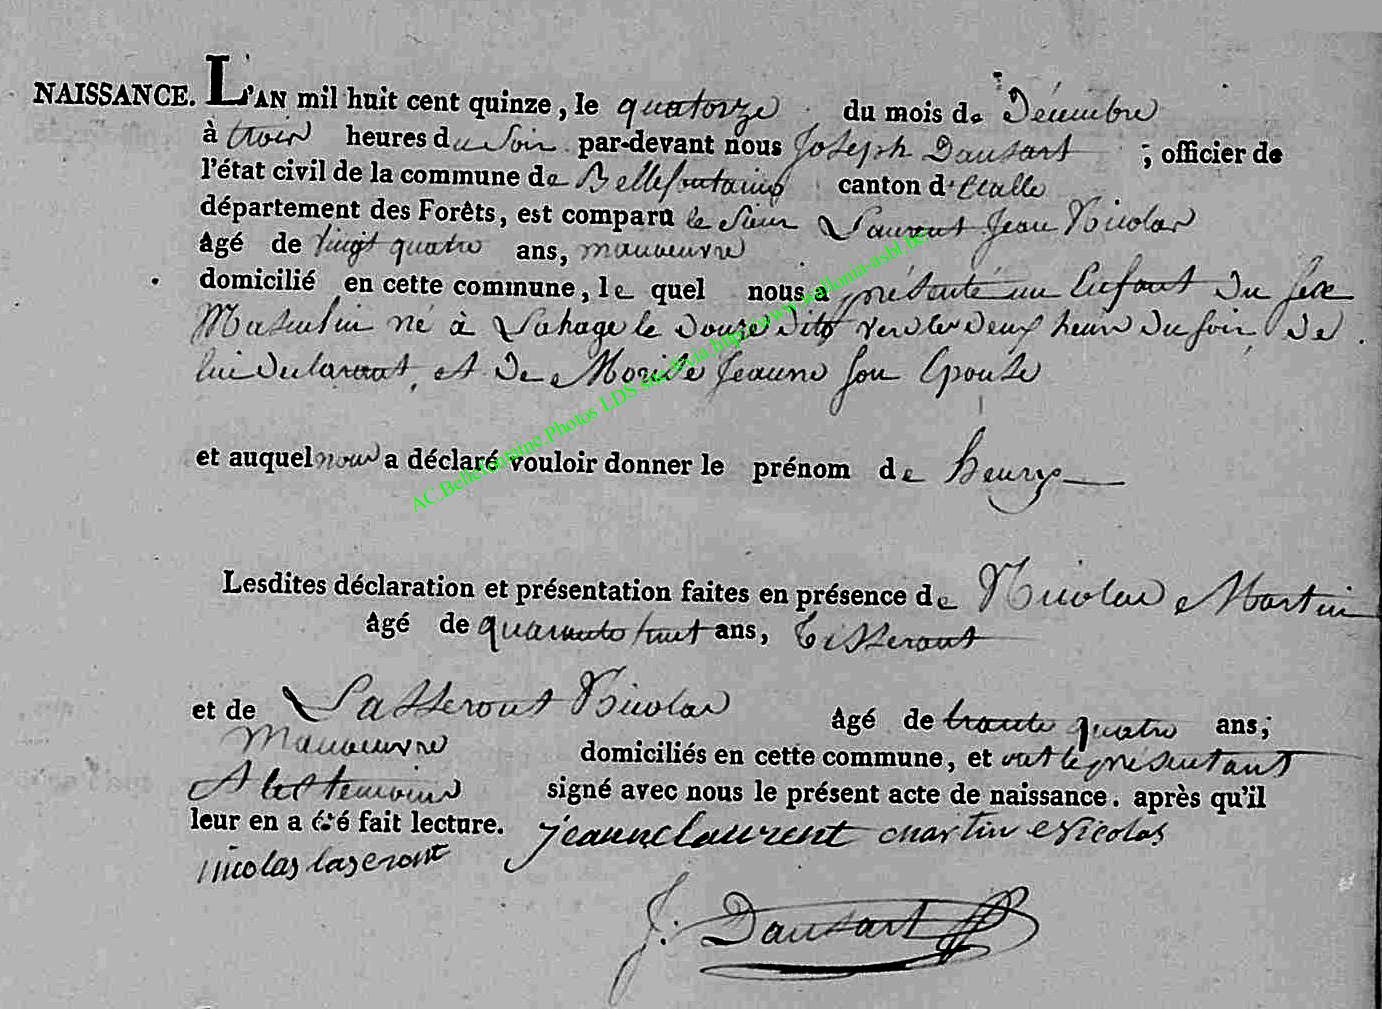 NAISSANCE. L'AN mil huit cent quinze, le quatorze du mois de Décembre
à trois heures du Soir par-devant nous Joseph Dausart ; officier de
l'état civil de la commune de Bellefontaine canton d'Etalle
département des Forêts, est comparu le Sieur Laurent Jean Nicolas
âgé de vingt quatre ans, manoeuvre
domicilié en cette commune, le quel nous a présenté un Enfant du sexe
Masculin né à Lahage le douze dito vers les deux heures du soir, de
lui declarant, et de Jeanne son Epouse
et auquel nous a déclaré vouloir donner le prénom de henry
Lesdites déclaration et présentation faites en présence de Nicolas Martin
âgé de quarante huit ans, tisserant
et de Lasseront Nicolas âgé de trente quatre ans;
Manoeuvre domiciliés en cette commune, et ont le présentant
et les temoins signé avec nous le présent acte de naissance. après qu'il
leur en a été fait lecture. jeanne laurent martin nicolas
nicolas laseront
J. Dausart
AC.Bellefontaine.Photos LDS via http://www.wallonia-asbl.be/